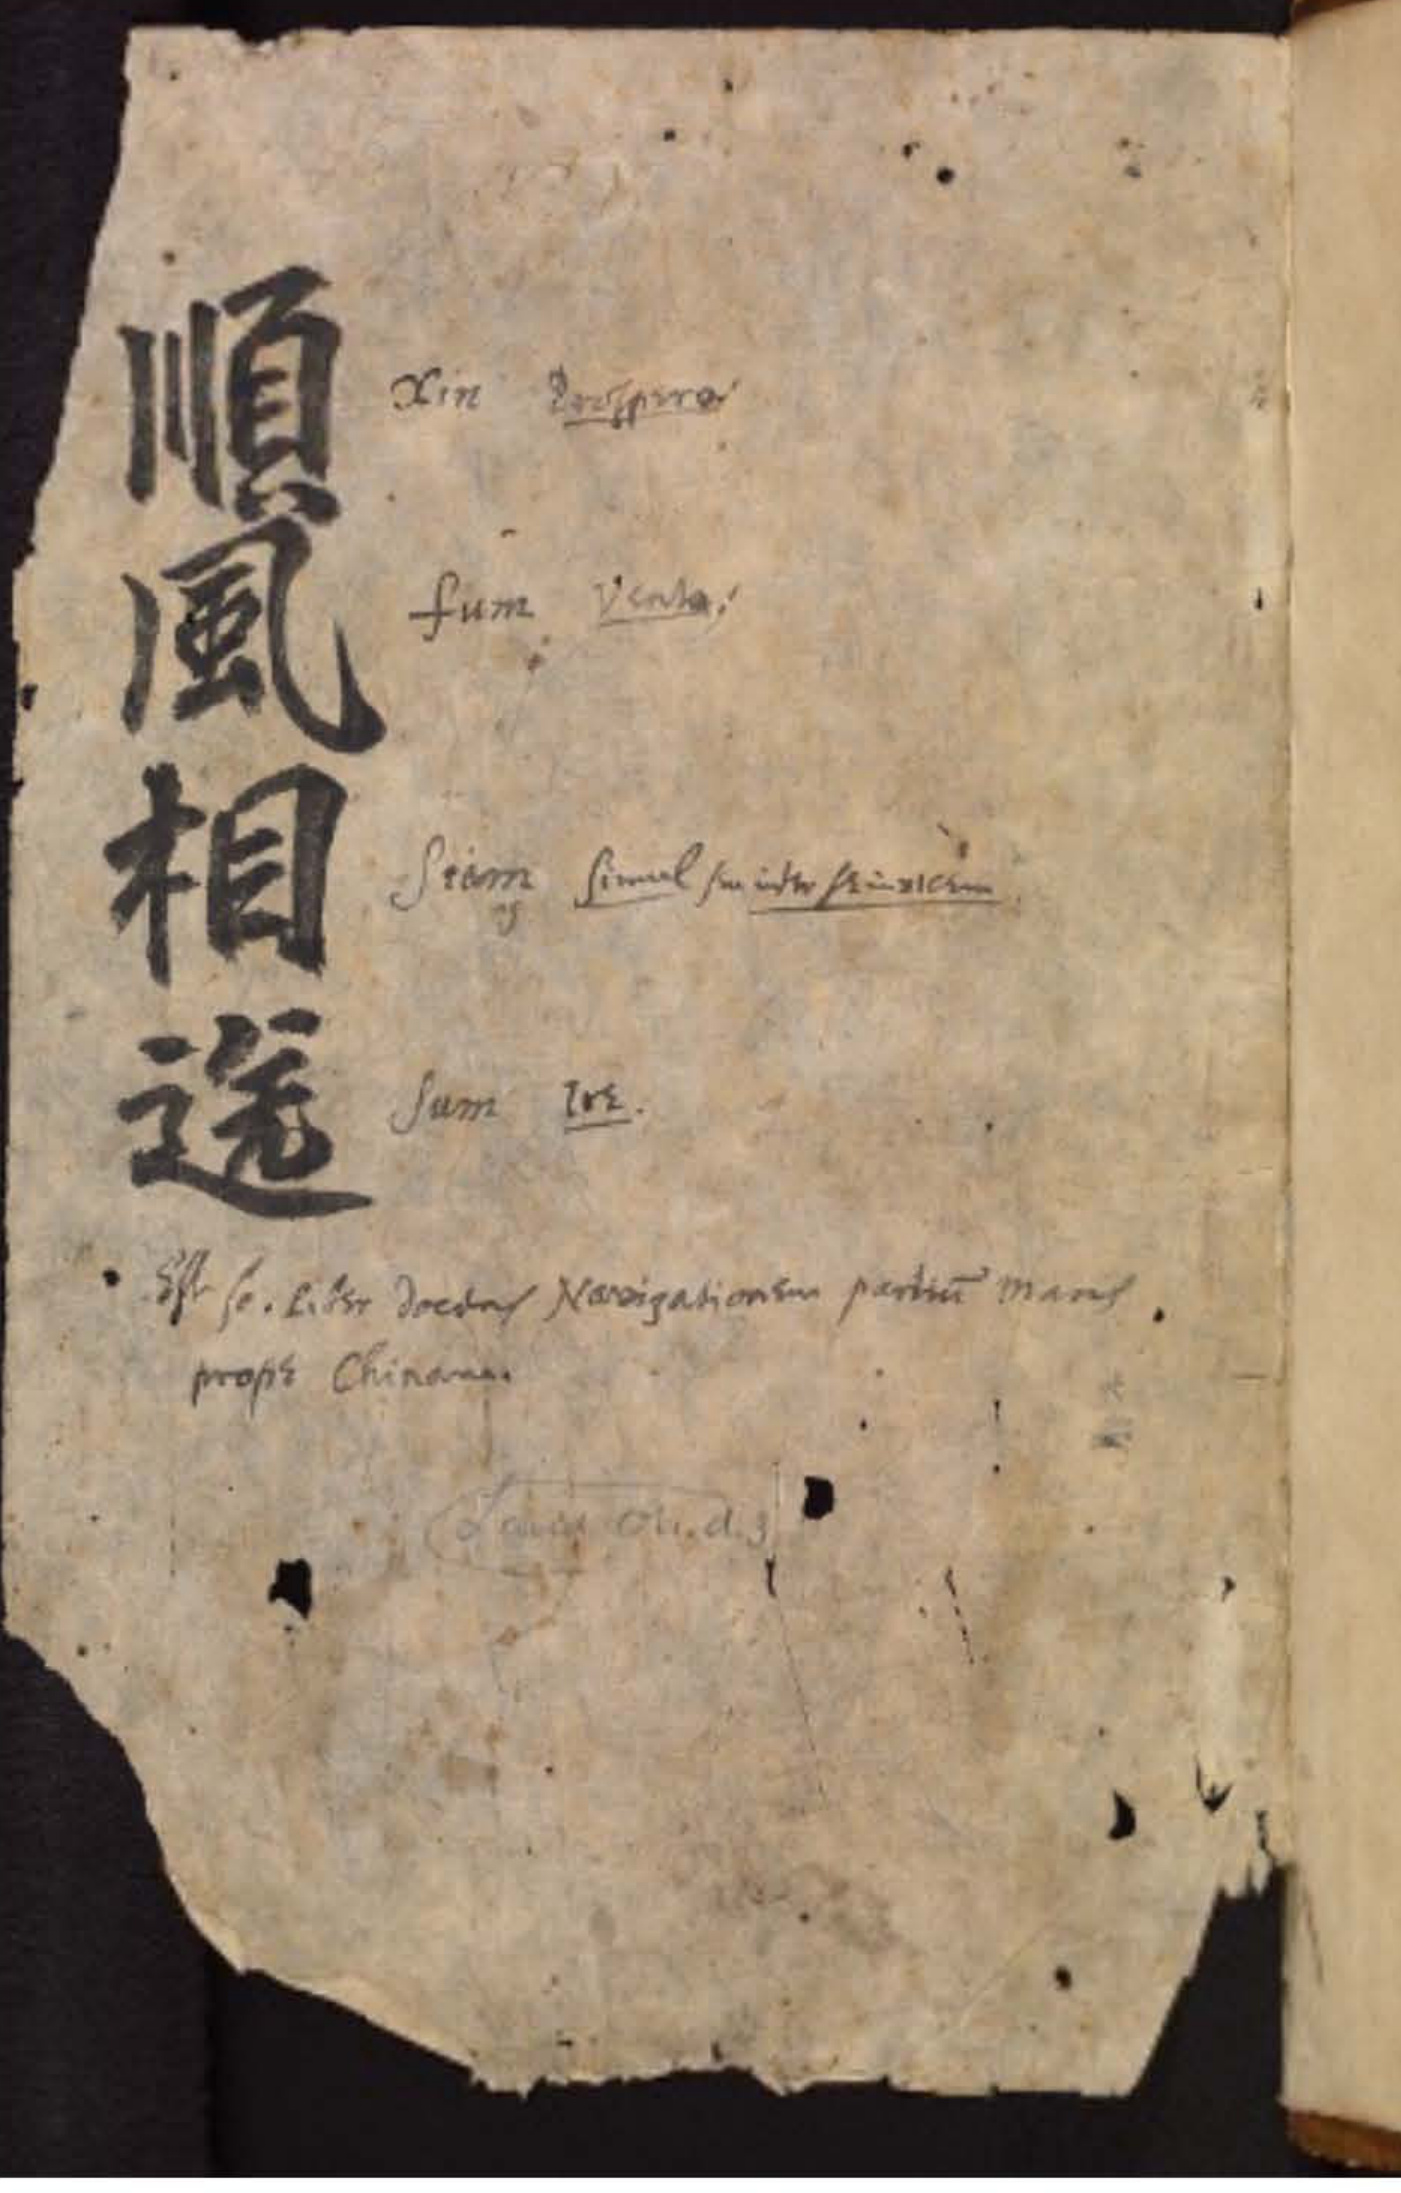 順風相送
Xin Prospero
fum Vento,
Siam simul seu inter se invicem
Sum Ire.
Est sc. Liber docens Navigationem partiũ Maris
prope Chinam.
Laud Or. d. 3